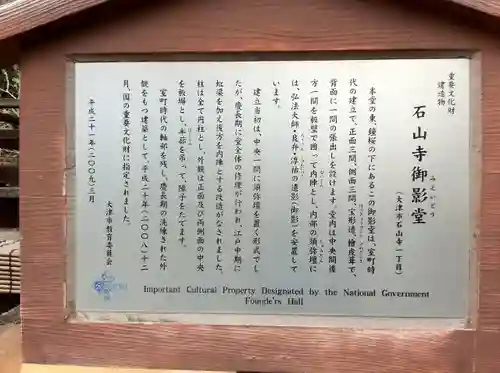 重要文化財
建造物
石山寺御影堂
みえいどう
（大津市石山寺一丁目）
本堂の東、鐘桜の下にあるこの御影堂は、室町時
代の建立で、正面三間、側面三間、宝形造、檜皮葺で、
背面に一間の張出しを設けます。堂内は中央間後
方一間を板壁で囲って内陣とし、内部の須弥壇に
は、弘法大師・良弁・淳祐の遺影（御影）を安置して
います。
建立当初は、中央一間に須弥壇を置く形式でし
たが、慶長期に堂全体の修理が行われ、江戸中期に
虹梁を加え後方を内陣とする改造がなされました。
柱は全て円柱とし、外観は正面及び両側面の中央
を板扉とし、半蔀を吊って、障子をたてます。
室町時代の軸部を残し、慶長期の洗練された外
観をもつ建築として、平成二十年（二〇〇八）十二
月、国の重要文化財に指定されました。
平成二十一年（二〇〇九）三月
大津市教育委員会
Important Cultural Property Designated by the National Government
Founde'rs Hall